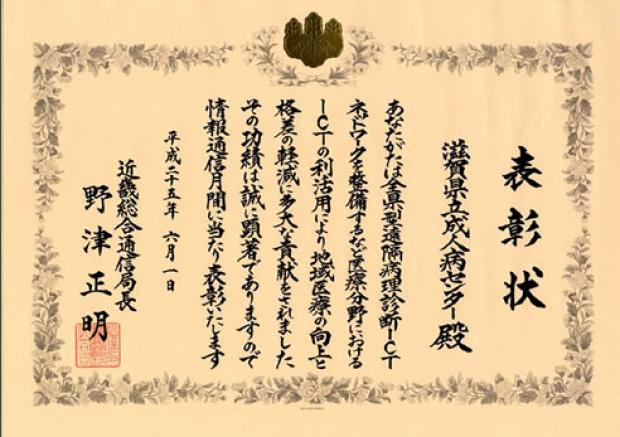 表彰状
滋賀県立成人病センター殿
あなたがたは全県型遠隔病理診断ICT
ネットワークを整備するなど医療分野における
ICTの利活用により地域医療の向上と
格差の軽減に多大な貢献をされました
その功績は誠に顕著でありますので
情報通信月間に当たり表彰いたします
平成二十五年 六月一日
近畿総合通信局長
野津正明